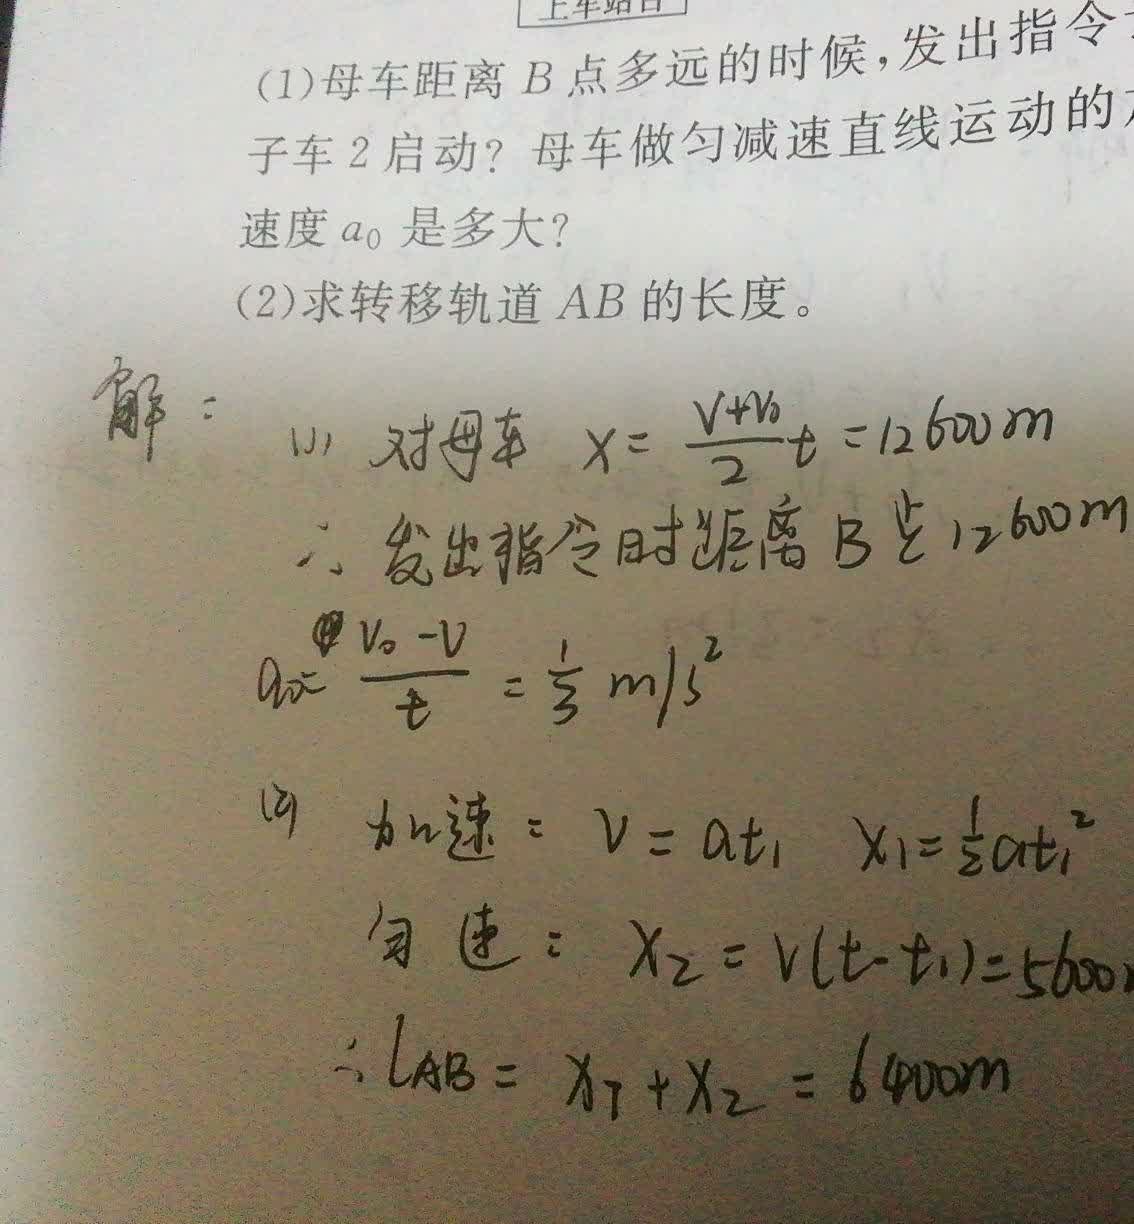 上车站台
(1)母车距离 B 点多远的时候,发出指令
子车 2 启动? 母车做匀减速直线运动的
速度 a₀ 是多大?
(2)求转移轨道 AB 的长度。
解:
(1) 对母车 X = \frac{V+V₀}{2} t = 12600m
∴ 发出指令时距离 B 点 12600m
a₀ = \frac{V₀-V}{t} = \frac{1}{3} m/s²
(2) 加速: V = at₁ X₁ = \frac{1}{2}at₁²
匀速: X₂ = V(t-t₁) = 5600
∴ L_{AB} = X₁ + X₂ = 6400m